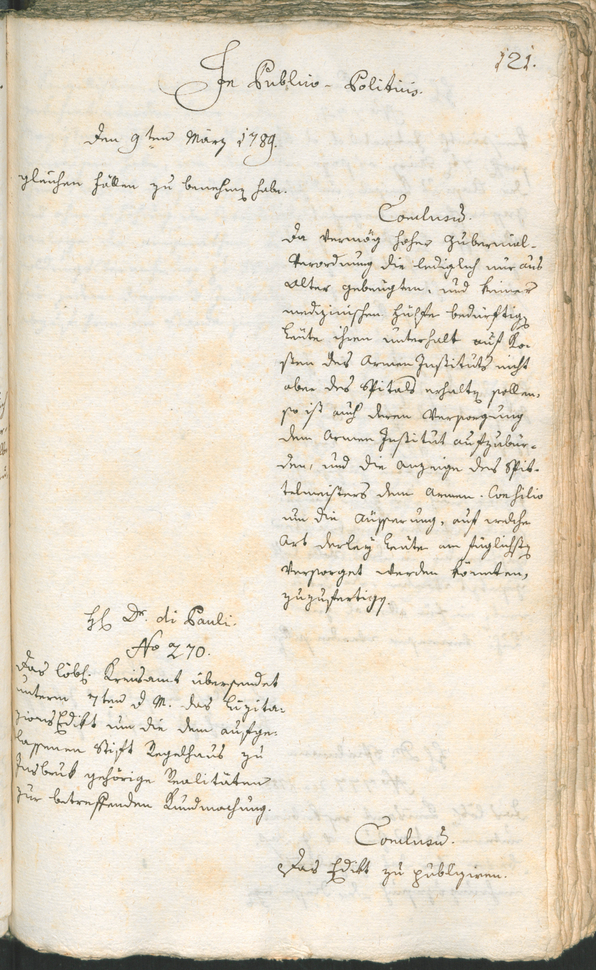 121.
In Publico-Politicis.
den 9ten März 1789.
gleichen Fällen zu benehmen habe.
Conclusum.
Da vermög hoher Gubernial-
Verordnung die lediglich nur aus
Alter gebeugten, und keiner
medizinischen Hülfe bedürftige
Leüte ihren unterhalt auf Ko-
sten des Armen Instituts nicht
aber des Spitals erhalten sollen,
so ist auch deren Versorgung
dem Armen Institut aufzubür-
den, und die Anzeige des Spit-
telmeisters dem Armen-Consilio
um die Äusserung, auf welche
Art derley Leute am füglichsten
versorget werden könnten,
zuzufertigen.
H. Dr. di Pauli.
No 270.
Das löbl. Kreisamt übersendet
unterm 7ten d. M. das Lizita-
zions Edikt um die dem aufge-
lassenen Stift Regelhaus zu
Insbruk gehörige Realitäten
zur betreffenden Kundmachung.
Conclusum.
Das Edikt zu publiziren.